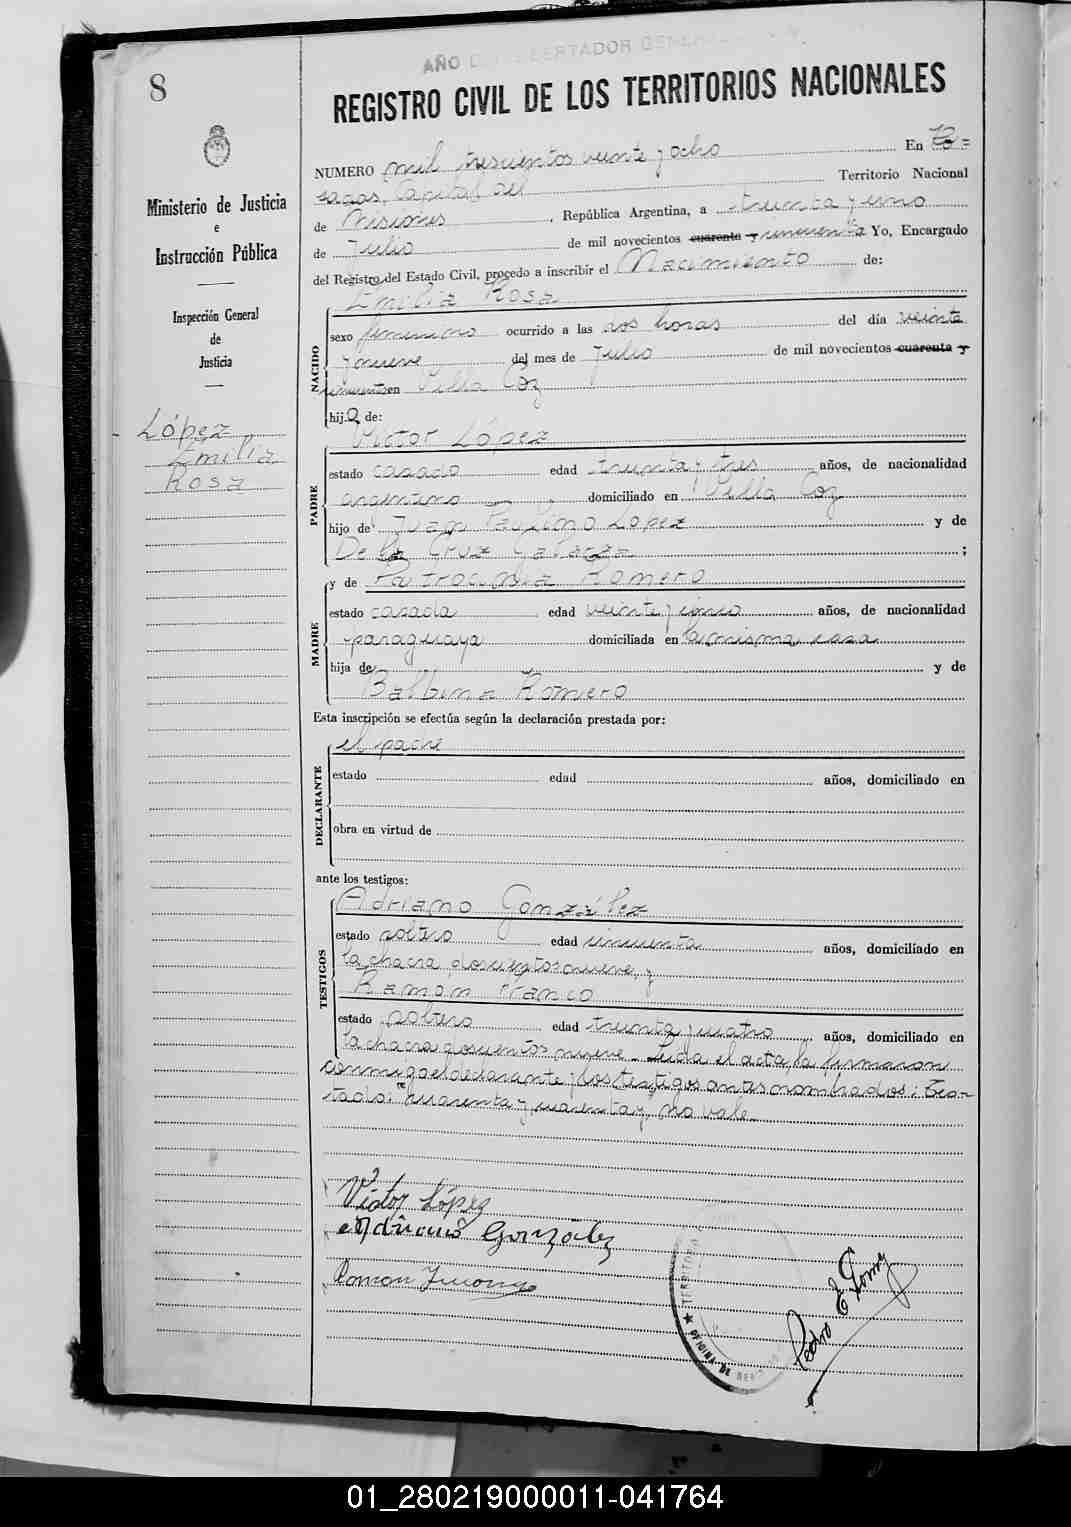 8
AÑO DEL LIBERTADOR GENERAL
REGISTRO CIVIL DE LOS TERRITORIOS NACIONALES
Ministerio de Justicia
e
Instrucción Pública
Inspección General
de
Justicia
López
Emilia
Rosa
NUMERO mil trescientos veinte y ocho En Po=
sadas, Capital del Territorio Nacional
de Misiones, República Argentina, a treinta y uno
de Julio de mil novecientos cuarenta y cincuenta Yo, Encargado
del Registro del Estado Civil, procedo a inscribir el Nacimiento de:
Emilia Rosa
NACIDO
sexo femenino ocurrido a las dos horas del día veinte
y nueve del mes de Julio de mil novecientos cuarenta y
cincuenta en Villa Coz
hija de:
Victor López
PADRE
estado casado edad treinta y tres años, de nacionalidad
argentino domiciliado en Villa Coz
hijo de Juan Paulino López y de
De la Cruz ;
y de Patrocinia Romero
MADRE
estado casada edad veinte y años, de nacionalidad
paraguaya domiciliada en la misma casa
hija de y de
Balbina Romero
Esta inscripción se efectúa según la declaración prestada por:
el padre
DECLARANTE
estado edad años, domiciliado en
obra en virtud de
ante los testigos:
Adriano González
TESTIGOS
estado soltero edad cincuenta años, domiciliado en
la chacra doscientos nueve, y
Ramón Franco
estado soltero edad treinta y cuatro años, domiciliado en
la chacra doscientos nueve. Leída el acta la firmaron
conmigo el declarante y los testigos antes nombrados: Tes-
tado: "cuarenta y cuarenta y" no vale.
Victor López
Adriano González
Ramon
Pedro E Gomez
★ OFICINA DE
TERRITORIA
01_280219000011-041764